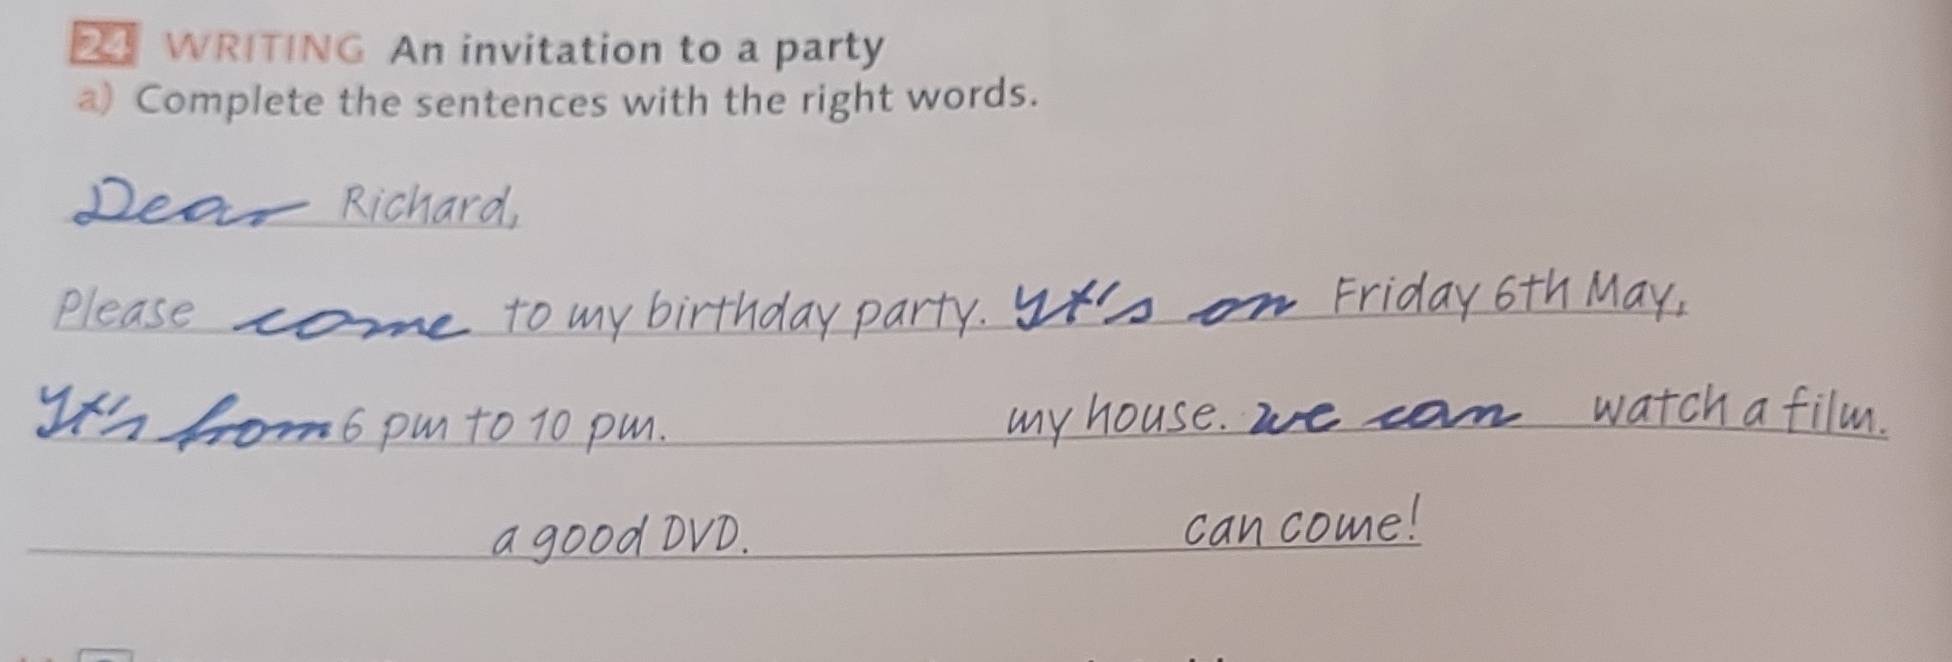 24 WRITING An invitation to a party
a) Complete the sentences with the right words.
Dear Richard,
Please come to my birthday party. It's on Friday 6th May.
It's from 6 pm to 10 pm. my house. we can watch a film.
a good DVD. can come!